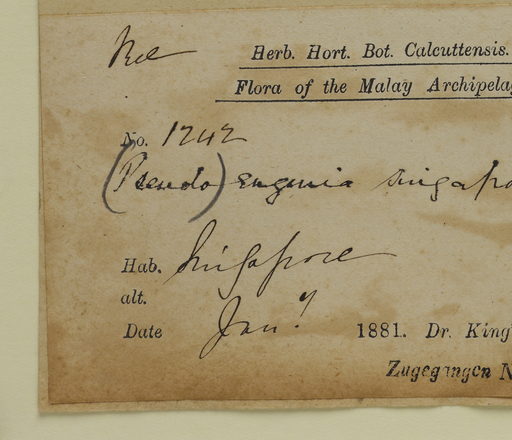 Herb. Hort. Bot. Calcuttensis.
Flora of the Malay Archipelag
No. 1242
(Pseudo) Eugenia singapo
Hab. Singapore
alt.
Date Jany 1881. Dr. King'
Zugegangen N